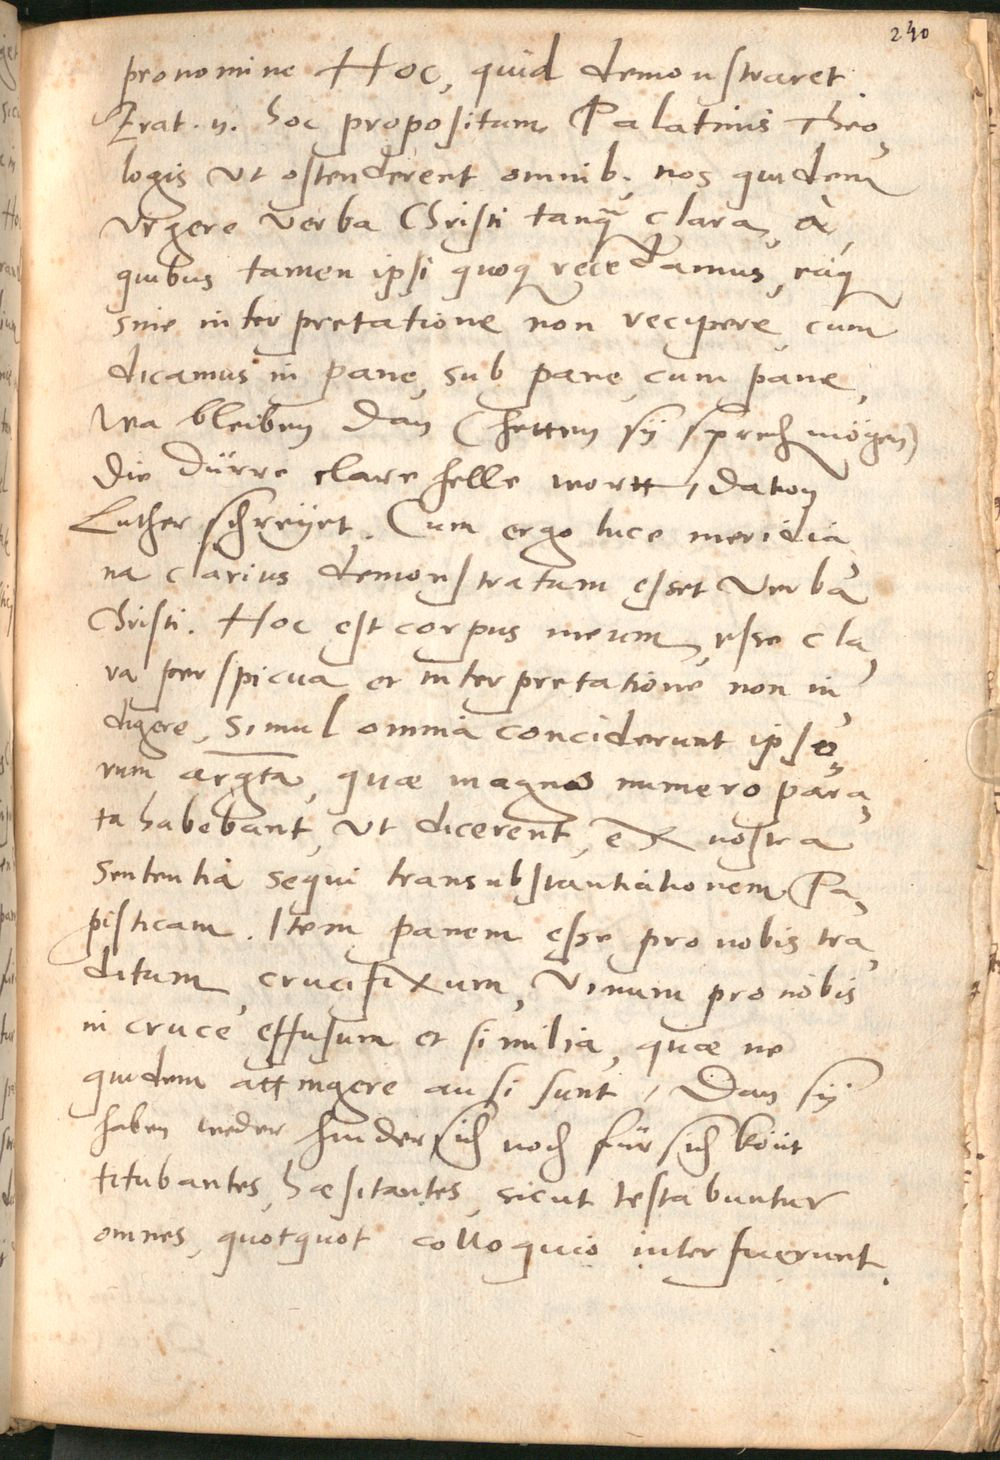 240
pronomine Hoc, quid demonstraret.
Erat. n. hoc propositum Palatinis Theo,
logis ut ostenderent omnib. nos quidem
urgere verba Christi tanq̃ clara, à
quibus tamen ipsi quoq recedamus, eaq
sine interpretatione non recipere, cum
dicamus in pane, sub pane, cum pane,
wa bleiben dan (hetten sÿ sprech mögen)
die dürre clare helle wortt, dauon
Luther schreÿet. Cum ergo luce meridia,
na clarius demonstratum esset verba
Christi. Hoc est corpus meum, esse cla,
ra perspicua et interpretatione non in,
digere, simul omnia conciderunt ipso,
rum argta, quæ magno numero para,
ta habebant, ut dicerent, ex nostra
sententia sequi transubstantiationem Pa,
pisticam. Item panem esse pro nobis tra,
ditum, crucifixum, vinum pro nobis
in cruce effusum et similia, quæ ne
quidem attingere ausi sunt, Dan sÿ
haben weder hindersich noch fürsich köñt
titubantes, hæsitantes, sicut testabuntur
omnes, quotquot colloquio interfuerunt.